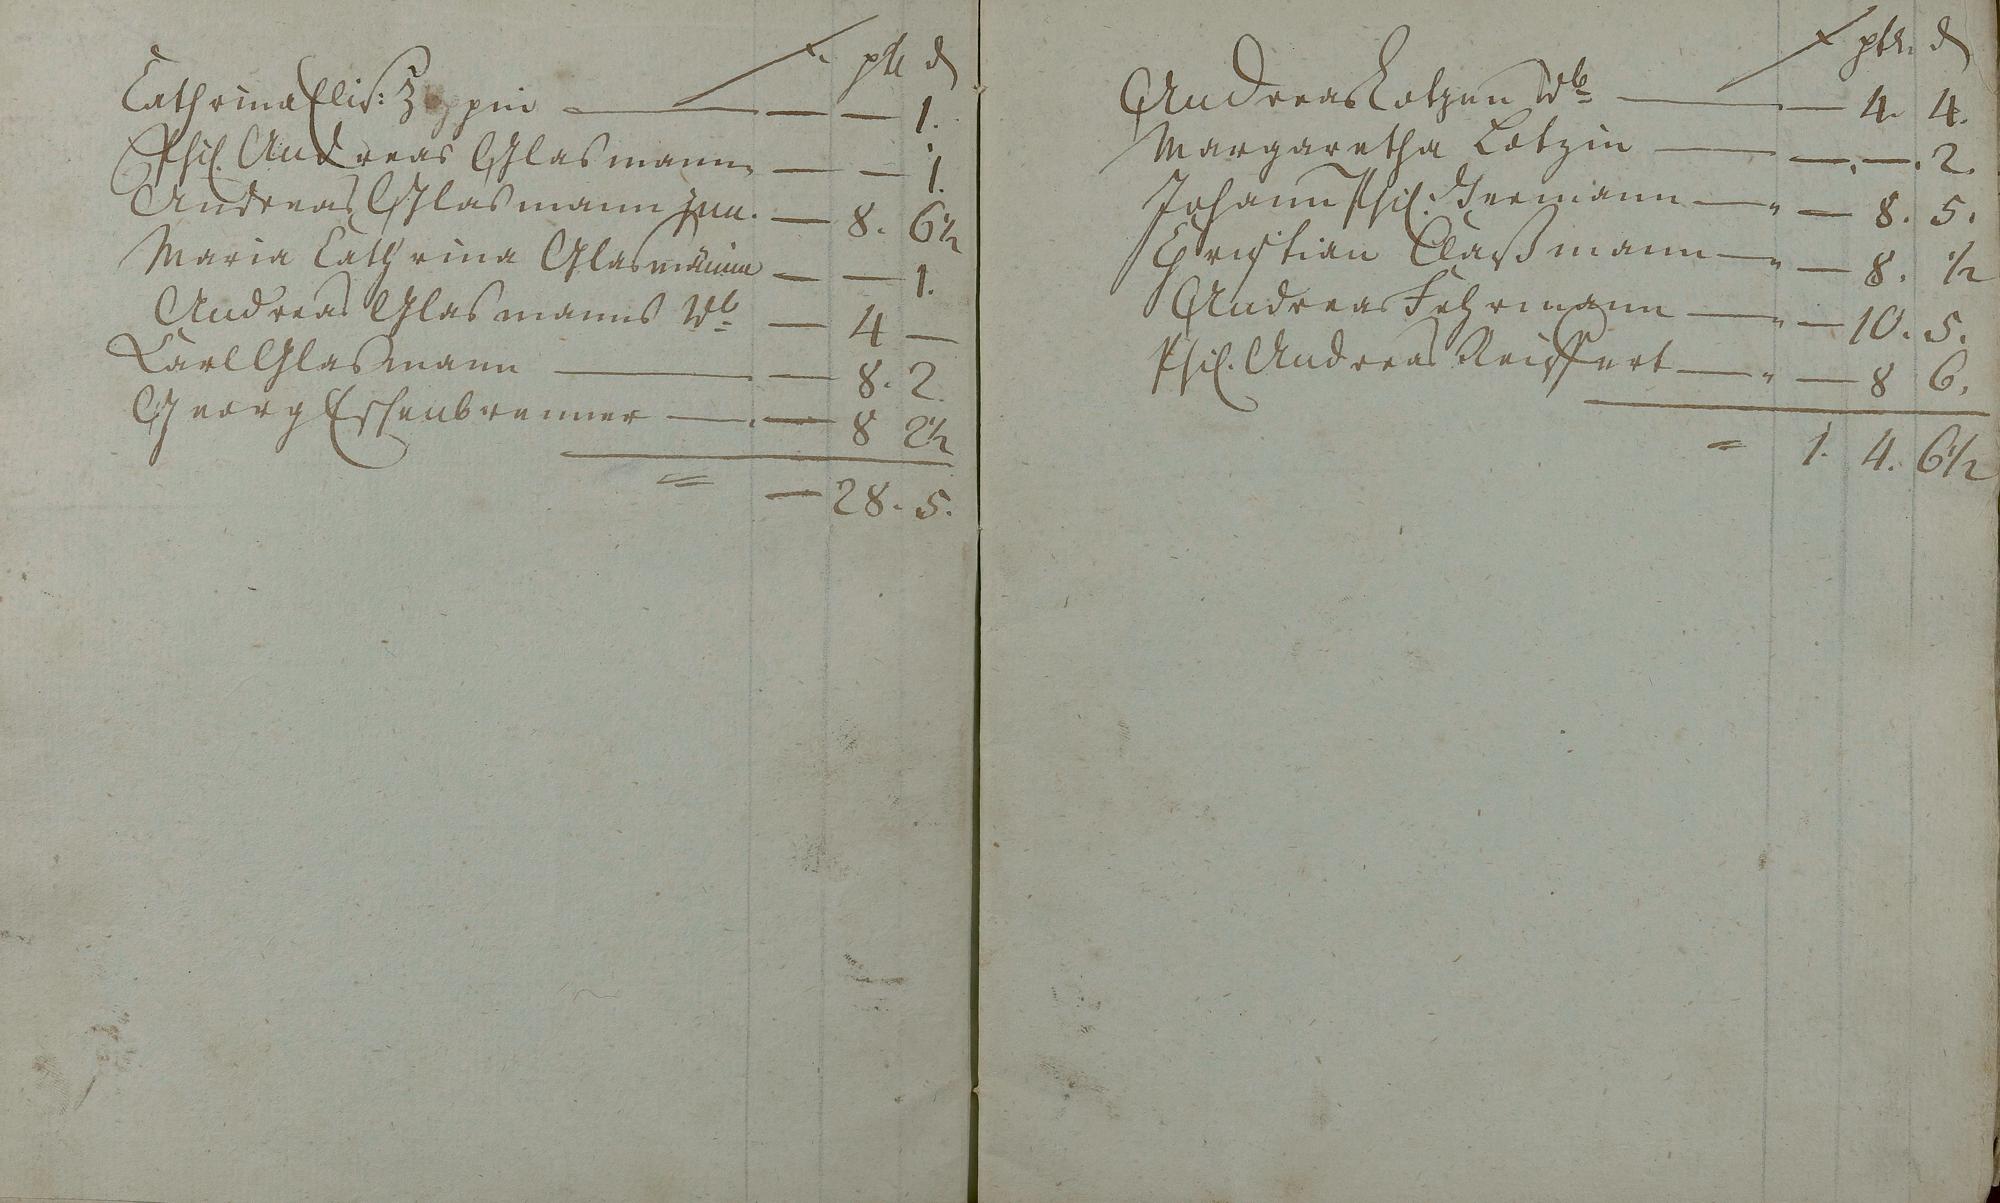 f. ptr d
Cathrina Elis: — — 1.
Phil. Andreas Glasmann — — 1.
Andreas Glasmann jun. — 8. 6½
Maria Cathrina Glasmännin — — 1.
Andreas Glasmanns Wb — 4 —
Carl Glasmann — — 8. 2.
Georg Essenbrenner — — 8 2½
= — 28. 5.
f ptr. d
Andreas Lotzen Wb — — 4. 4.
Margaretha Lotzin — — . — . 2.
Johann Phil. Germann — " — 8. 5.
Christian Claßmann — " — 8. ½
Andreas Fehrmann — " — 10. 5.
Phil. Andreas Reiffert — " — 8 6.
= 1. 4. 6½